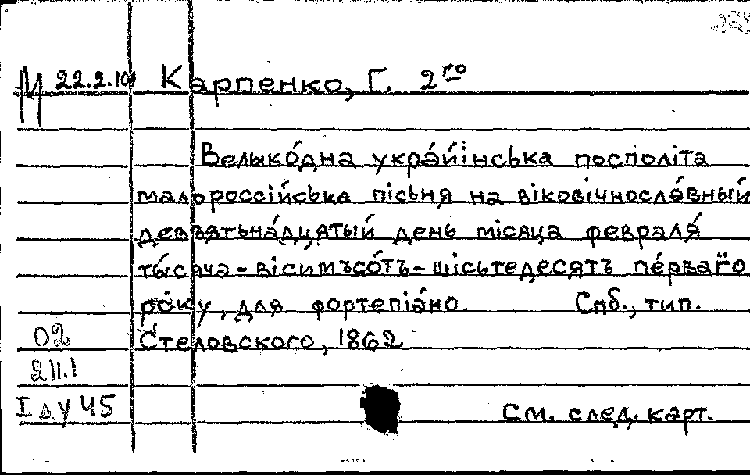 М 22.2.10 Карпенко, Г. 2го
Велыко́дна украйінська посполіта
малороссійська пісьня на віковічносла́вный
девьятьна́дцятый день місяца февраля́
ты́сяча-вісимъсо́тъ-шісьтедесятъ пе́рваго
ро́ку, для фортепіа́но. Спб., тип.
02 Стелловского, 1862
211.1
I Д У 45 См. след. карт.